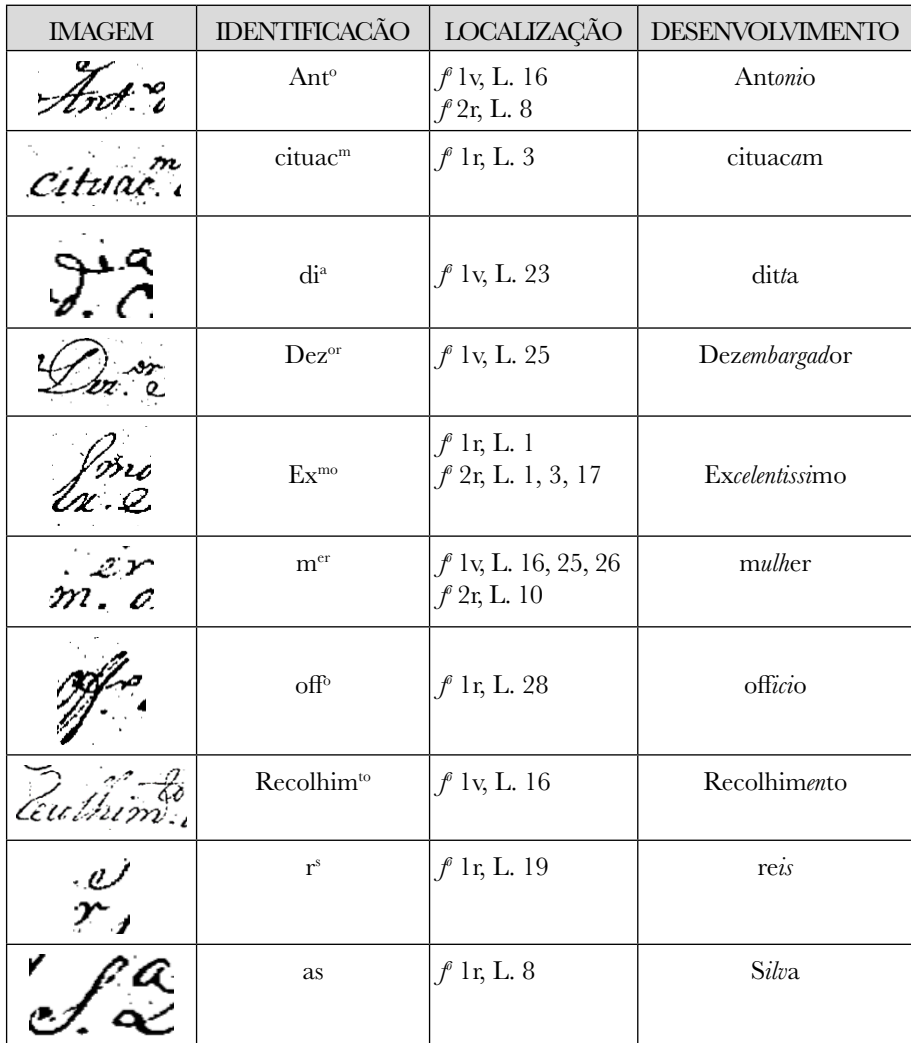 IMAGEM IDENTIFICACÃO LOCALIZAÇÃO DESENVOLVIMENTO
Ant.º Antº fº 1v, L. 16 Antonio
fº 2r, L. 8
cituac.ᵐ cituacᵐ fº 1r, L. 3 cituacam
diª fº 1v, L. 23 ditta
Dez.ᵒʳ Dezᵒʳ fº 1v, L. 25 Dezembargador
Ex.ᵐᵒ Exᵐᵒ fº 1r, L. 1 Excelentissimo
fº 2r, L. 1, 3, 17
m.ᵉʳ mᵉʳ fº 1v, L. 16, 25, 26 mulher
fº 2r, L. 10
offº fº 1r, L. 28 officio
Recolhim.ᵗᵒ Recolhimᵗᵒ fº 1v, L. 16 Recolhimento
rˢ fº 1r, L. 19 reis
S.ª as fº 1r, L. 8 Silva